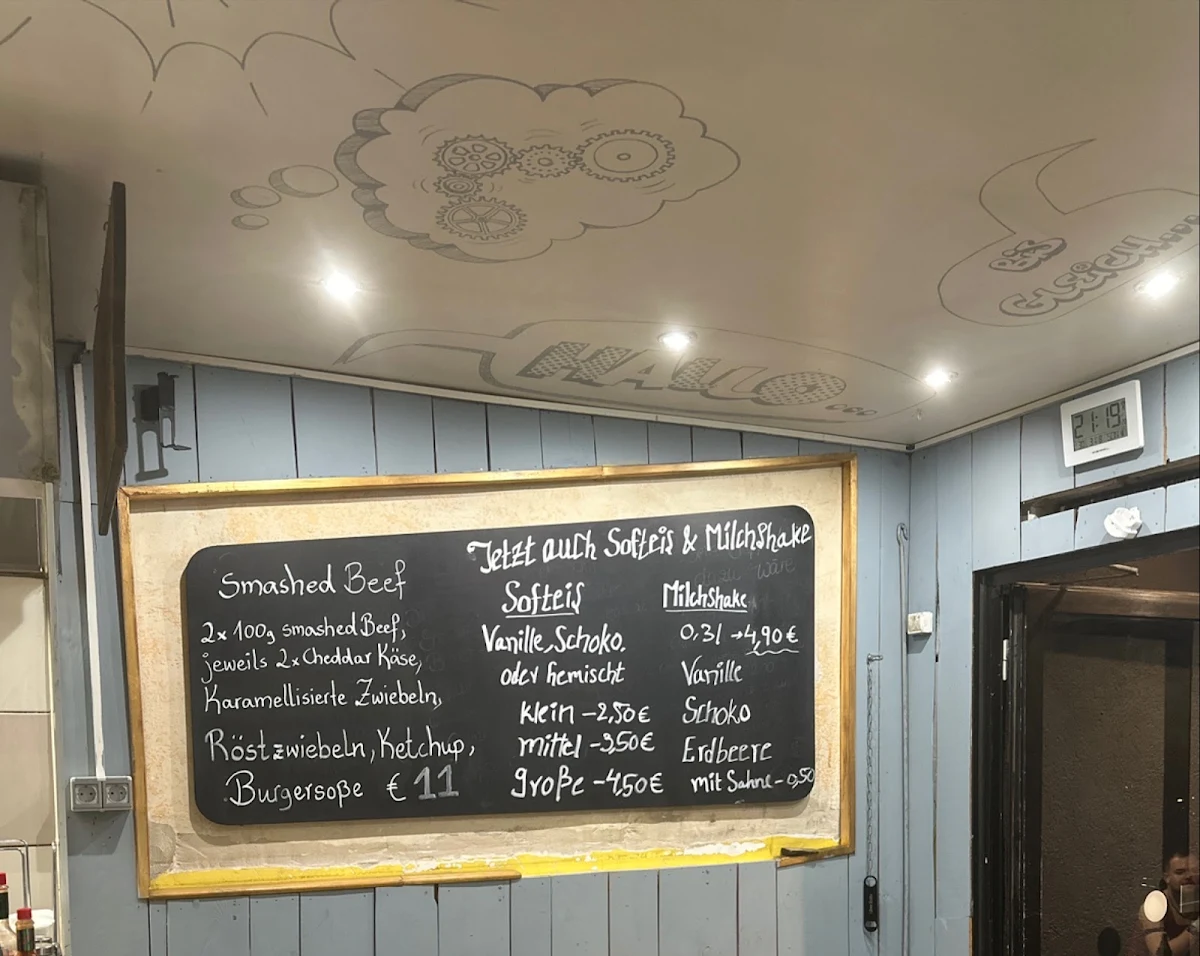 BIS
GLEICH....
HALLO...
21:19
Jetzt auch Softeis & Milchshake
Smashed Beef
2x 100g smashed Beef,
jeweils 2x Cheddar Käse,
Karamellisierte Zwiebeln,
Röstzwiebeln, Ketchup,
Burgersoße € 11
Softeis
Vanille, Schoko.
oder Gemischt
klein - 2,50€
mittel - 3,50€
große - 4,50€
Milchshake
0,3l → 4,90 €
Vanille
Schoko
Erdbeere
mit Sahne - 0,50